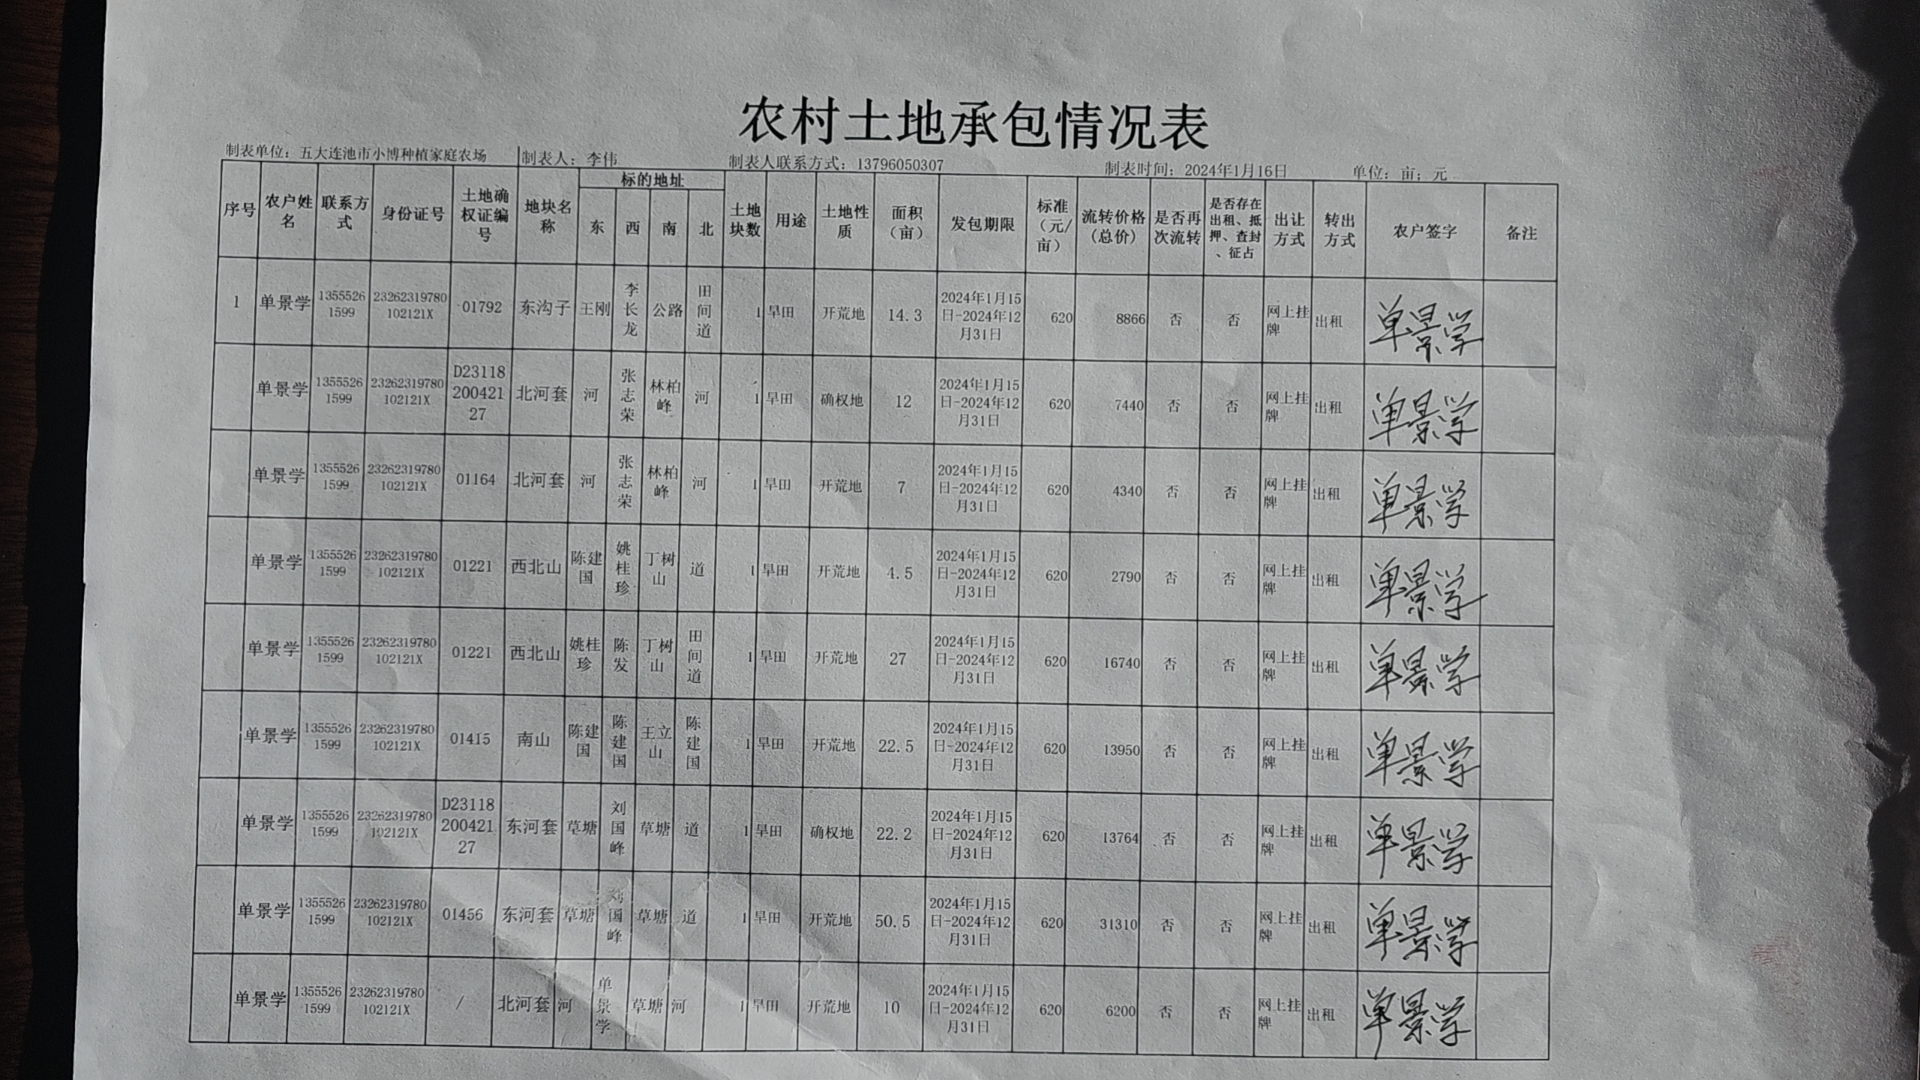 农村土地承包情况表
制表单位：五大连池市小博种植家庭农场 制表人：李伟 制表人联系方式：13796050307 制表时间：2024年1月16日 单位：亩；元
序号 农户姓名 联系方式 身份证号 土地确权证编号 地块名称 标的地址 东 西 南 北 土地块数 用途 土地性质 面积（亩） 发包期限 标准（元/亩） 流转价格（总价） 是否再次流转 是否存在出租、抵押、查封、征占 出让方式 转出方式 农户签字 备注
1 单景学 13555261599 23262319780102121X 01792 东沟子 王刚 李长龙 公路 田间道 1 旱田 开荒地 14.3 2024年1月15日-2024年12月31日 620 8866 否 否 网上挂牌 出租 单景学
单景学 13555261599 23262319780102121X D2311820042127 北河套 河 张志荣 林柏峰 河 1 旱田 确权地 12 2024年1月15日-2024年12月31日 620 7440 否 否 网上挂牌 出租 单景学
单景学 13555261599 23262319780102121X 01164 北河套 河 张志荣 林柏峰 河 1 旱田 开荒地 7 2024年1月15日-2024年12月31日 620 4340 否 否 网上挂牌 出租 单景学
单景学 13555261599 23262319780102121X 01221 西北山 陈建国 姚桂珍 丁树山 道 1 旱田 开荒地 4.5 2024年1月15日-2024年12月31日 620 2790 否 否 网上挂牌 出租 单景学
单景学 13555261599 23262319780102121X 01221 西北山 姚桂珍 陈发 丁树山 田间道 1 旱田 开荒地 27 2024年1月15日-2024年12月31日 620 16740 否 否 网上挂牌 出租 单景学
单景学 13555261599 23262319780102121X 01415 南山 陈建国 陈建国 王立山 陈建国 1 旱田 开荒地 22.5 2024年1月15日-2024年12月31日 620 13950 否 否 网上挂牌 出租 单景学
单景学 13555261599 23262319780102121X D2311820042127 东河套 草塘 刘国峰 草塘 道 1 旱田 确权地 22.2 2024年1月15日-2024年12月31日 620 13764 否 否 网上挂牌 出租 单景学
单景学 13555261599 23262319780102121X 01456 东河套 草塘 刘国峰 草塘 道 1 旱田 开荒地 50.5 2024年1月15日-2024年12月31日 620 31310 否 否 网上挂牌 出租 单景学
单景学 13555261599 23262319780102121X / 北河套 河 单景学 草塘 河 1 旱田 开荒地 10 2024年1月15日-2024年12月31日 620 6200 否 否 网上挂牌 出租 单景学